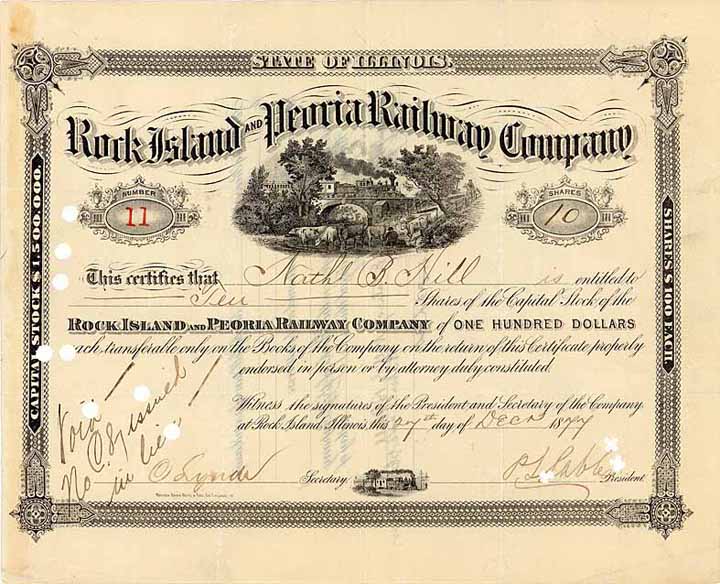 STATE OF ILLINOIS.
Rock Island AND Peoria Railway Company
NUMBER
11
SHARES
10
CAPITAL STOCK $1,500,000.
SHARES $100 EACH
This certifies that Nathl B. Hill is entitled to
Ten Shares of the Capital Stock of the
ROCK ISLAND AND PEORIA RAILWAY COMPANY of ONE HUNDRED DOLLARS
each, transferable only on the Books of the Company on the return of this Certificate properly
endorsed in person or by attorney duly constituted.
Witness the signatures of the President and Secretary of the Company
at Rock Island, Illinois this 27th day of Decr 1877
Void
No issued
in lieu
Secretary.
President.